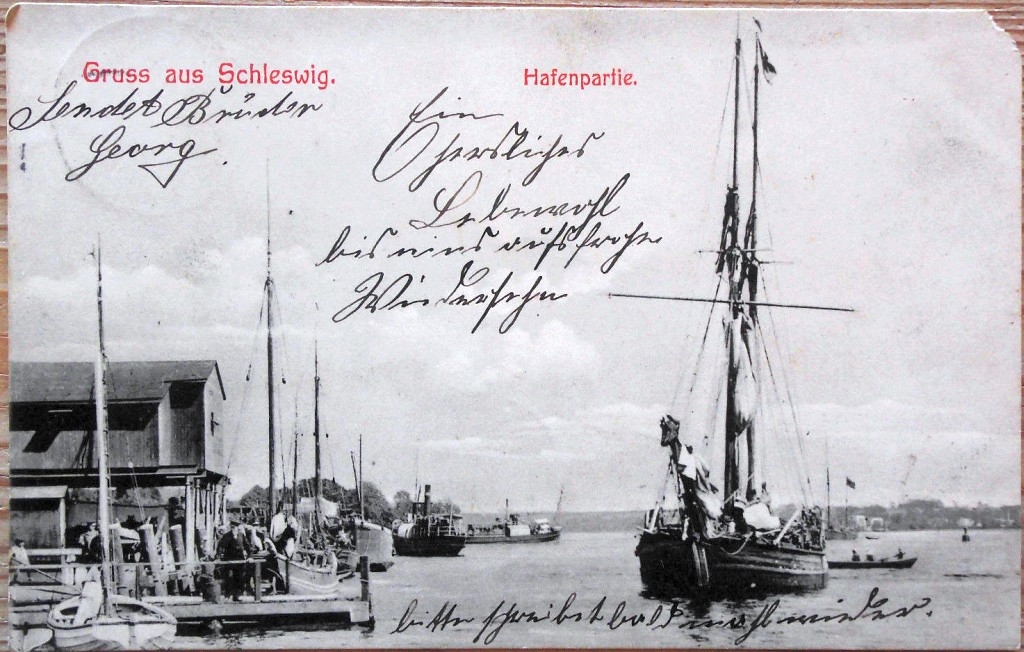 Gruss aus Schleswig.
Hafenpartie.
Sendet Brüder
Georg.
Ein
herzliches
Lebewohl
bis auf's frohe
Wiedersehn
bitte schreibet bald mahl wieder.